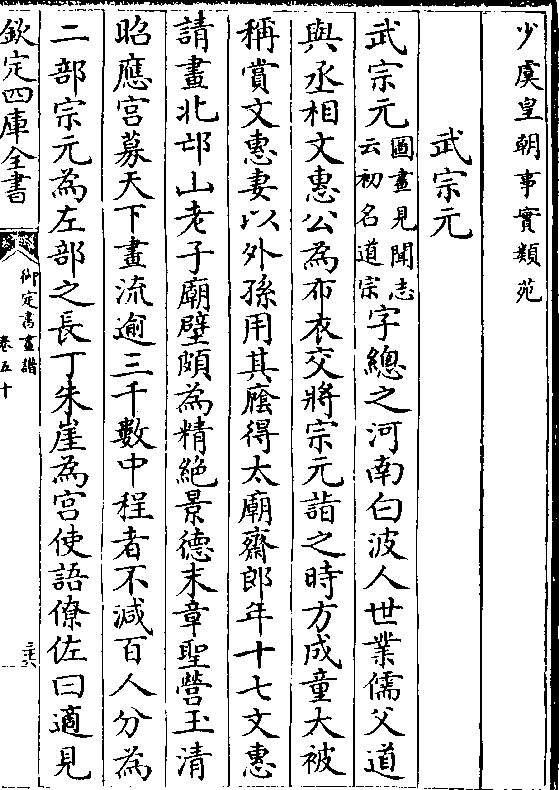 少虞皇朝事實類苑
武宗元
武宗元圖畫見聞志云初名道宗字總之河南白波人世業儒父道
與丞相文惠公為布衣交將宗元詣之時方成童大被
稱賞文惠妻以外孫用其廕得太廟齋郎年十七文惠
請畫北邙山老子廟壁頗為精絶景德末章聖營玉清
昭應宮募天下畫流逾三千數中程者不減百人分為
二部宗元為左部之長丁朱崖為宮使語僚佐曰適見
欽定四庫全書
御定書畫譜
卷五十